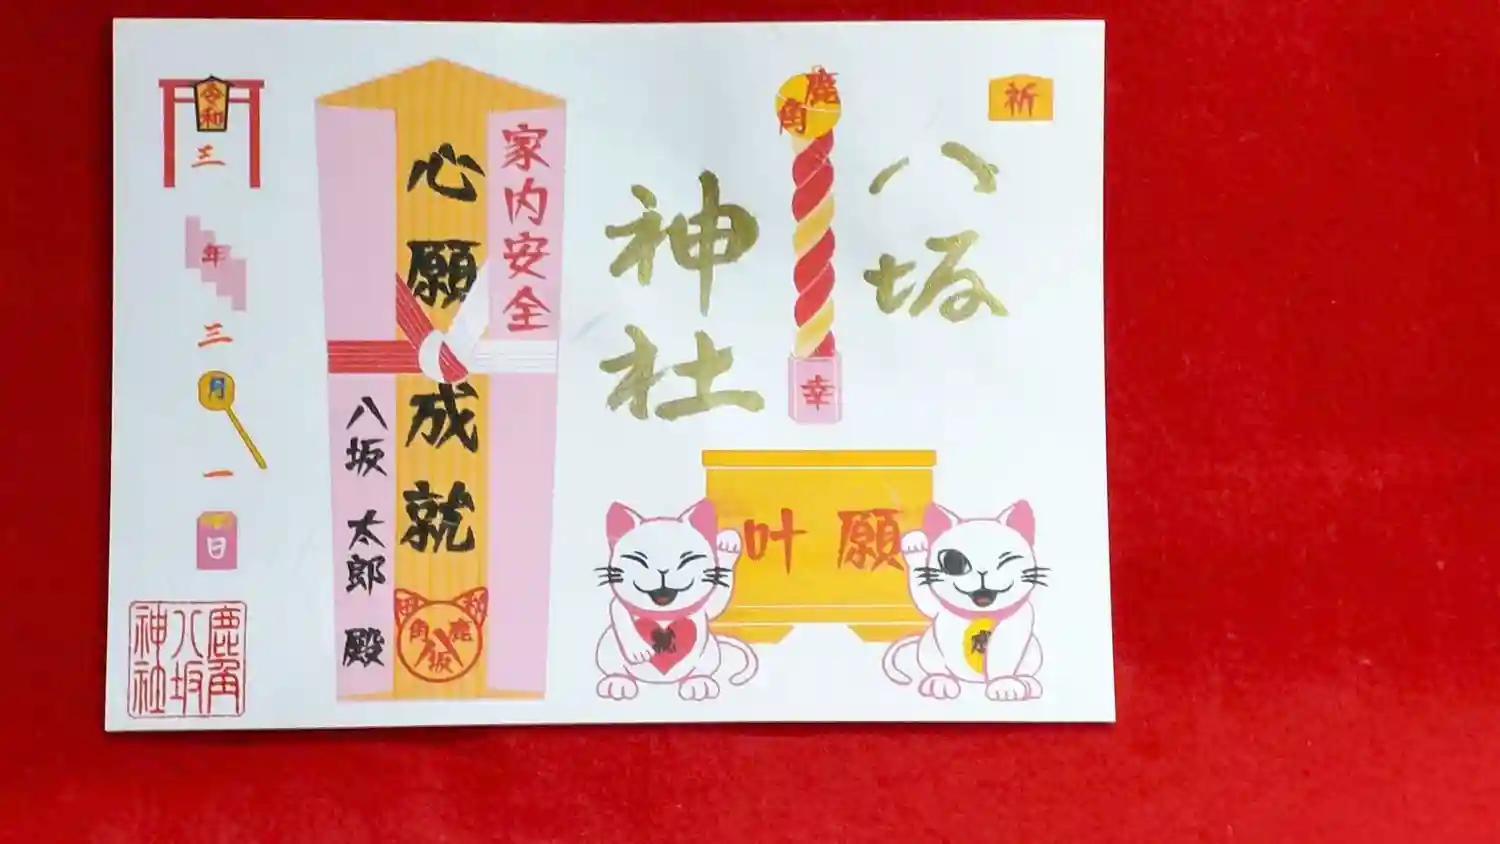 祈
八坂
鹿角
幸
神社
願叶
成
就
家内安全
心願成就
八坂 太郎 殿
鹿角
八坂
令和三年三月一日
鹿角
八坂
神社